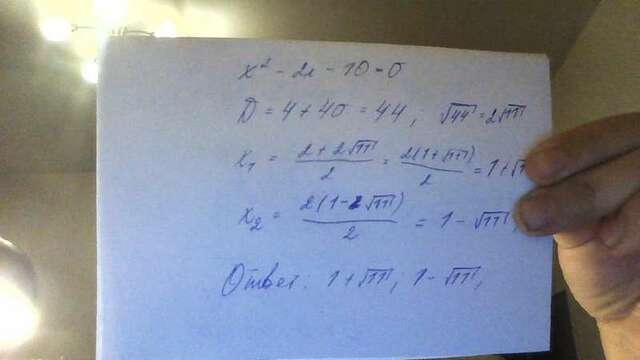 x² - 2x - 10 = 0
D = 4 + 40 = 44, √44 = 2√11
x₁ = (2 + 2√11)/2 = 2(1 + √11)/2 = 1 + √1
x₂ = 2(1 - √11)/2 = 1 - √11
Ответ: 1 + √11; 1 - √11,